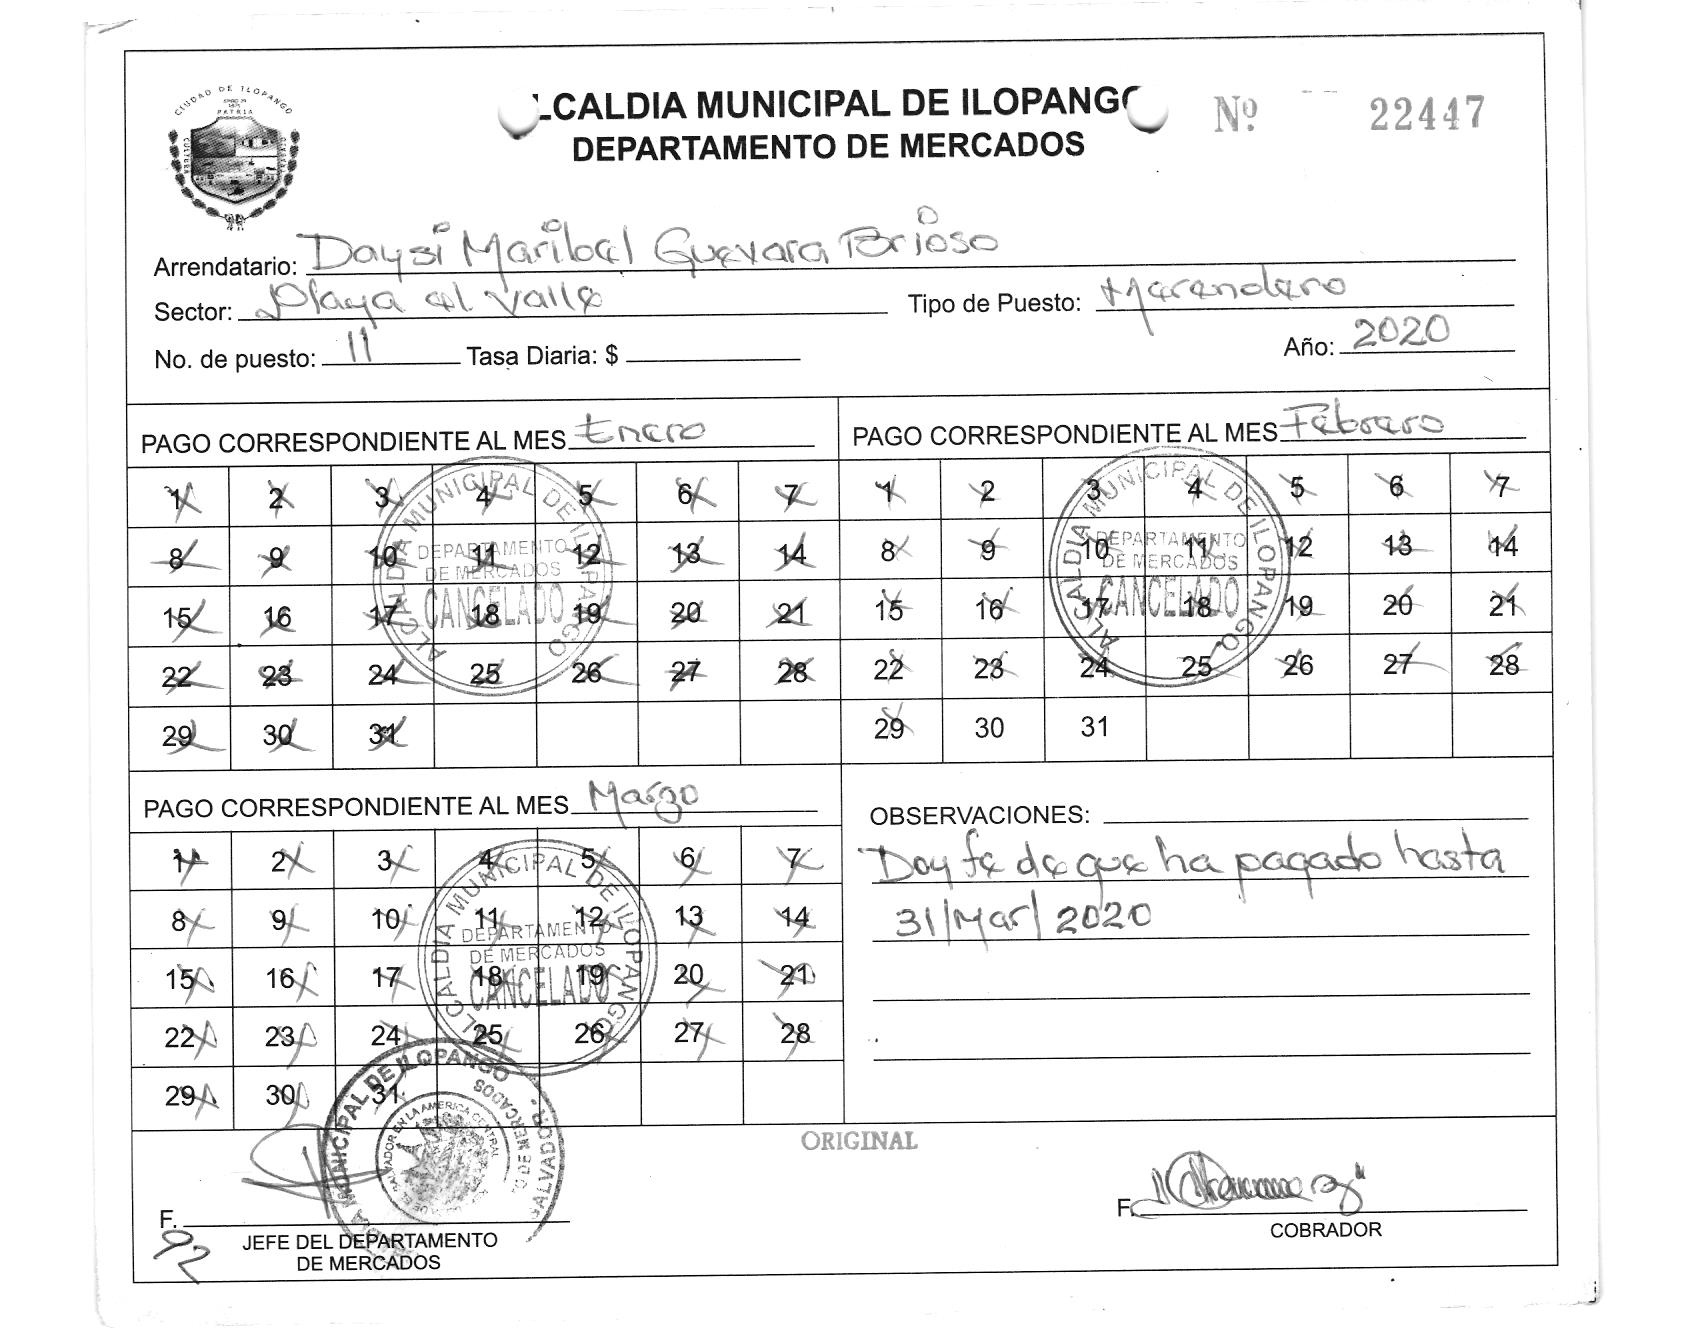 CIUDAD DE ILOPANGO
PATRIA
CULTURA
LCALDIA MUNICIPAL DE ILOPANGO
DEPARTAMENTO DE MERCADOS
Nº 22447
Arrendatario: Daysi Maribel Guevara Brioso
Sector: Playa el Valle Tipo de Puesto: Merendero
No. de puesto: 11 Tasa Diaria: $ Año: 2020
PAGO CORRESPONDIENTE AL MES Enero
1 2 3 4 5 6 7
8 9 10 11 12 13 14
15 16 17 18 19 20 21
22 23 24 25 26 27 28
29 30 31
ALCALDIA MUNICIPAL DE ILOPANGO
DEPARTAMENTO
DE MERCADOS
CANCELADO
PAGO CORRESPONDIENTE AL MES Febrero
1 2 3 4 5 6 7
8 9 10 11 12 13 14
15 16 17 18 19 20 21
22 23 24 25 26 27 28
29 30 31
ALCALDIA MUNICIPAL DE ILOPANGO
DEPARTAMENTO
DE MERCADOS
CANCELADO
PAGO CORRESPONDIENTE AL MES Marzo
1 2 3 4 5 6 7
8 9 10 11 12 13 14
15 16 17 18 19 20 21
22 23 24 25 26 27 28
29 30 31
ALCALDIA MUNICIPAL DE ILOPANGO
DEPARTAMENTO
DE MERCADOS
CANCELADO
OBSERVACIONES:
Doy fe de que ha pagado hasta
31/Mar/2020
ORIGINAL
MUNICIPAL DE ILOPANGO
DE MERCADOS
SALVADOR
EN LA AMERICA CENTRAL
F.
JEFE DEL DEPARTAMENTO
DE MERCADOS
92
F.
COBRADOR